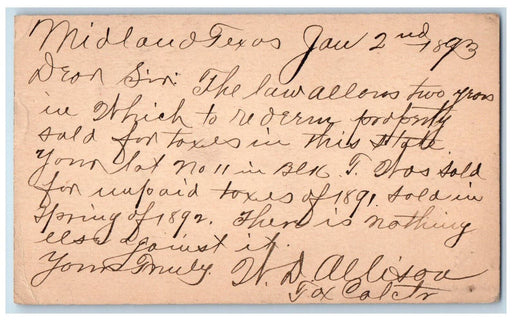 Midland Texas Jan 2nd 1893
Dear Sir: The law allows two years
in Which to redeem property
sold for taxes in this State.
Your lot No 11 in Blk. T. Was sold
for unpaid taxes of 1891, sold in
Spring of 1892. There is nothing
else against it.
Yours Truly W. D. Allison
Tax Coltr